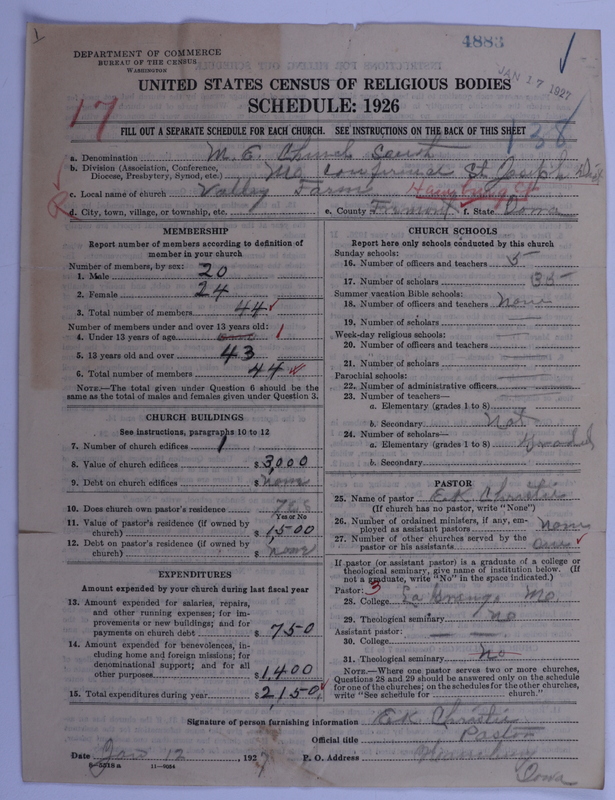 1
4883
DEPARTMENT OF COMMERCE
BUREAU OF THE CENSUS
WASHINGTON
JAN 17 1927
UNITED STATES CENSUS OF RELIGIOUS BODIES
SCHEDULE: 1926
17
138
FILL OUT A SEPARATE SCHEDULE FOR EACH CHURCH. SEE INSTRUCTIONS ON THE BACK OF THIS SHEET
a. Denomination M. E. Church South
b. Division (Association, Conference, Diocese, Presbytery, Synod, etc.) Mo St. Joseph
c. Local name of church Valley Farm
d. City, town, village, or township, etc. e. County Fremont f. State Iowa
MEMBERSHIP
Report number of members according to definition of
member in your church
Number of members, by sex:
1. Male 20
2. Female 24
3. Total number of members 44
Number of members under and over 13 years old:
4. Under 13 years of age 1
5. 13 years old and over 43
6. Total number of members 44
NOTE.—The total given under Question 6 should be the
same as the total of males and females given under Question 3.
CHURCH BUILDINGS
See instructions, paragraphs 10 to 12
7. Number of church edifices 1
8. Value of church edifices $ 3,000
9. Debt on church edifices $ none
10. Does church own pastor's residence yes
Yes or No
11. Value of pastor's residence (if owned by
church) $ 1,500
12. Debt on pastor's residence (if owned by
church) $ none
EXPENDITURES
Amount expended by your church during last fiscal year
13. Amount expended for salaries, repairs,
and other running expenses; for im-
provements or new buildings; and for
payments on church debt $ 750
14. Amount expended for benevolences, in-
cluding home and foreign missions; for
denominational support; and for all
other purposes $ 1,400
15. Total expenditures during year $ 2,150
CHURCH SCHOOLS
Report here only schools conducted by this church
Sunday schools:
16. Number of officers and teachers 5
17. Number of scholars 35
Summer vacation Bible schools:
18. Number of officers and teachers None
19. Number of scholars
Week-day religious schools:
20. Number of officers and teachers
21. Number of scholars
Parochial schools:
22. Number of administrative officers
23. Number of teachers—
a. Elementary (grades 1 to 8)
b. Secondary Not
24. Number of scholars—
a. Elementary (grades 1 to 8)
b. Secondary
PASTOR
25. Name of pastor E K Christie
(If church has no pastor, write "None")
26. Number of ordained ministers, if any, em-
ployed as assistant pastors None
27. Number of other churches served by the
pastor or his assistants One
If pastor (or assistant pastor) is a graduate of a college or
theological seminary, give name of institution below. (If
not a graduate, write "No" in the space indicated.)
Pastor: 3
28. College La Grange Mo
29. Theological seminary no
Assistant pastor: — —
30. College
31. Theological seminary No
NOTE.—Where one pastor serves two or more churches,
Questions 28 and 29 should be answered only on the schedule
for one of the churches; on the schedules for the other churches,
write "See schedule for church."
Signature of person furnishing information E K Christie
Official title Pastor
Date Jan 12, 1927 P. O. Address Hamburg
Iowa
8-5518 a 11-9084